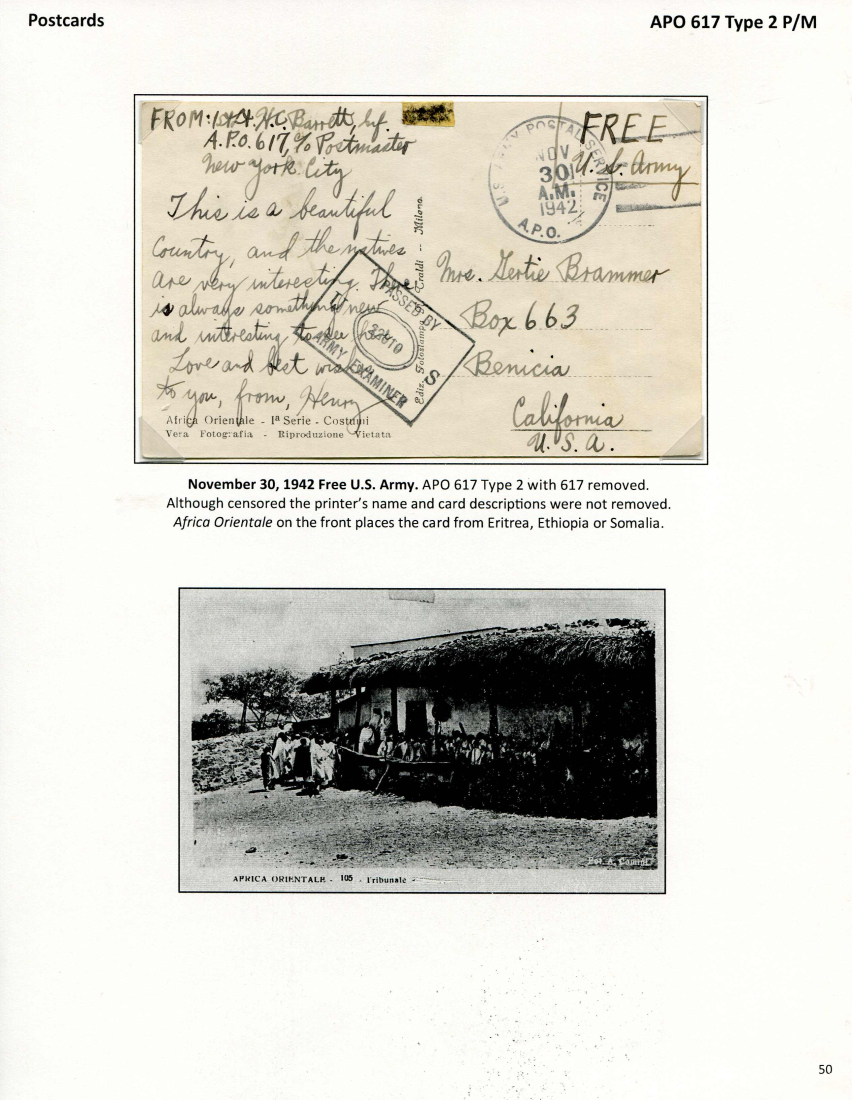 Postcards
APO 617 Type 2 P/M
FROM: 1st Lt. H.C. Barrett, Inf.
A.P.O. 617, c/o Postmaster
New York City
This is a beautiful
Country, and the natives
are very interesting. There
is always something new
and interesting to see here.
Love and best wishes
to you, from, Henry
Africa Orientale - Iª Serie - Costumi
Vera Fotografia - Riproduzione Vietata
Ediz. Fotostampa Traldi - Milano
PASSED BY
S
ARMY EXAMINER
U.S. ARMY POSTAL SERVICE
NOV
30
A.M.
1942
A.P.O.
FREE
U.S. Army
Mrs. Gertie Brammer
Box 663
Benicia
California
U.S.A.
November 30, 1942 Free U.S. Army. APO 617 Type 2 with 617 removed.
Although censored the printer's name and card descriptions were not removed.
Africa Orientale on the front places the card from Eritrea, Ethiopia or Somalia.
Fot. A. Comini
AFRICA ORIENTALE - 105 - Tribunale -
50